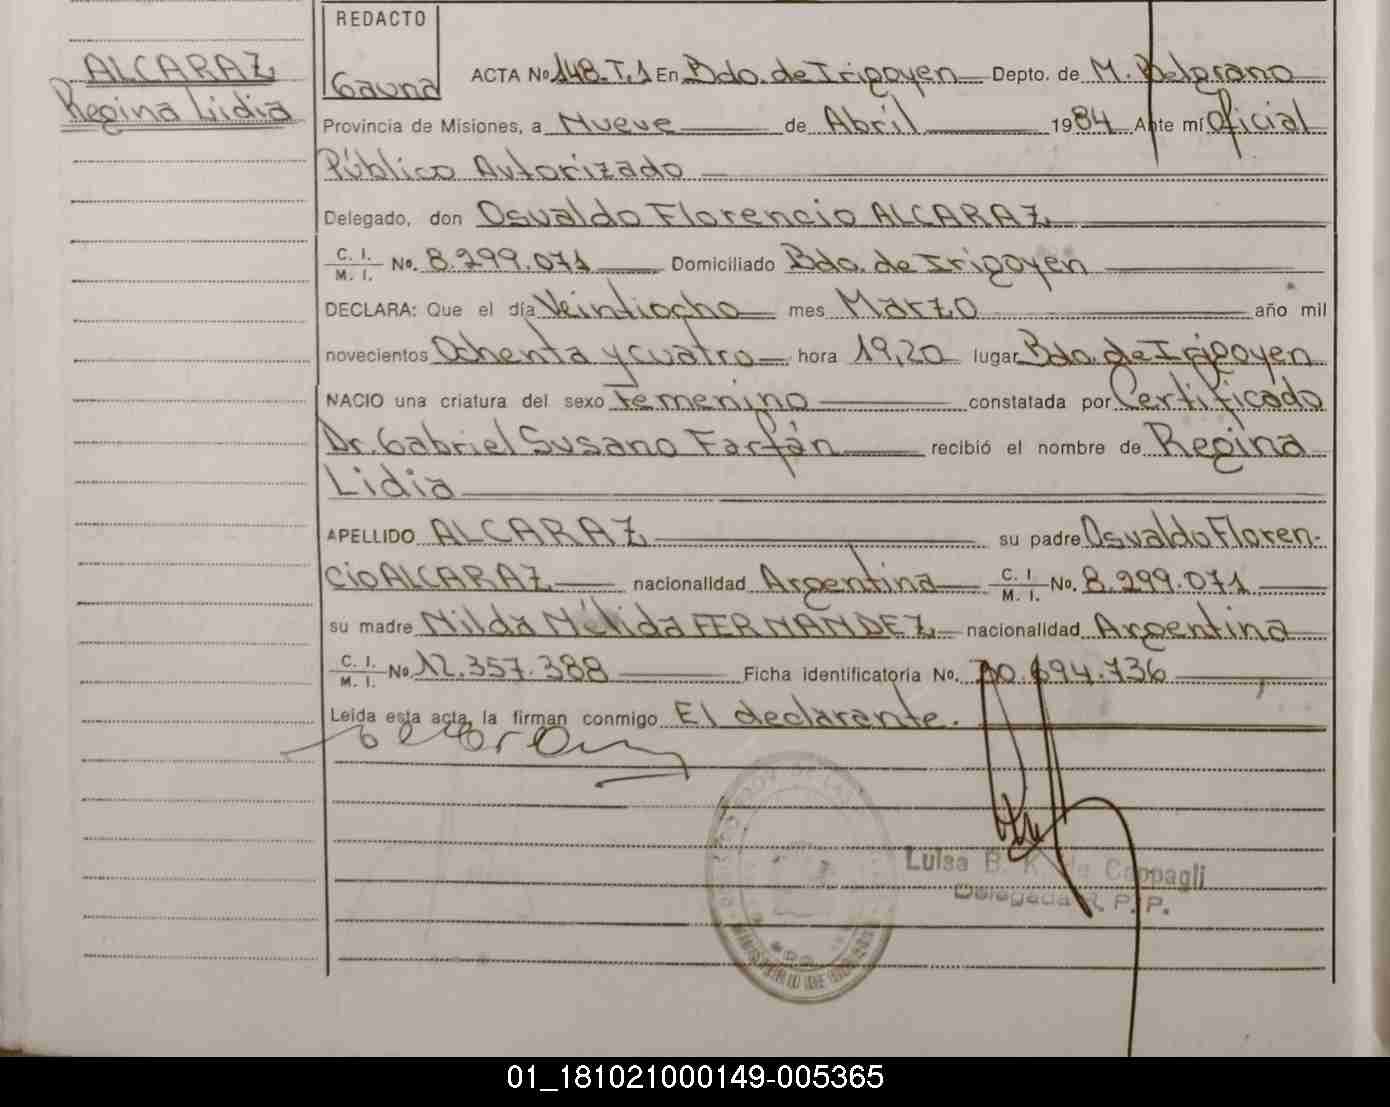 ALCARAZ
Regina Lidia
REDACTO
Gauna
ACTA No 148.T.1 En Bdo. de Irigoyen Depto. de M. Belgrano
Provincia de Misiones, a Nueve de Abril 1984 Ante mí Oficial
Público Autorizado
Delegado, don Osvaldo Florencio ALCARAZ
C. I. / M. I. No. 8.299.071 Domiciliado Bdo. de Irigoyen
DECLARA: Que el día Veintiocho mes Marzo año mil
novecientos Ochenta y cuatro hora 19,20 lugar Bdo. de Irigoyen
NACIO una criatura del sexo Femenino constatada por Certificado
Dr. Gabriel Susano Farfán recibió el nombre de Regina
Lidia
APELLIDO ALCARAZ su padre Osvaldo Floren-
cio ALCARAZ nacionalidad Argentina C. I. / M. I. No. 8.299.071
su madre Nilda Nélida FERNANDEZ nacionalidad Argentina
C. I. / M. I. No. 12.357.388 Ficha identificatoria No. 30.694.736
Leida esta acta, la firman conmigo El declarante.
Luisa B. K. de Cappagli
Delegada R. P. P.
01_181021000149-005365